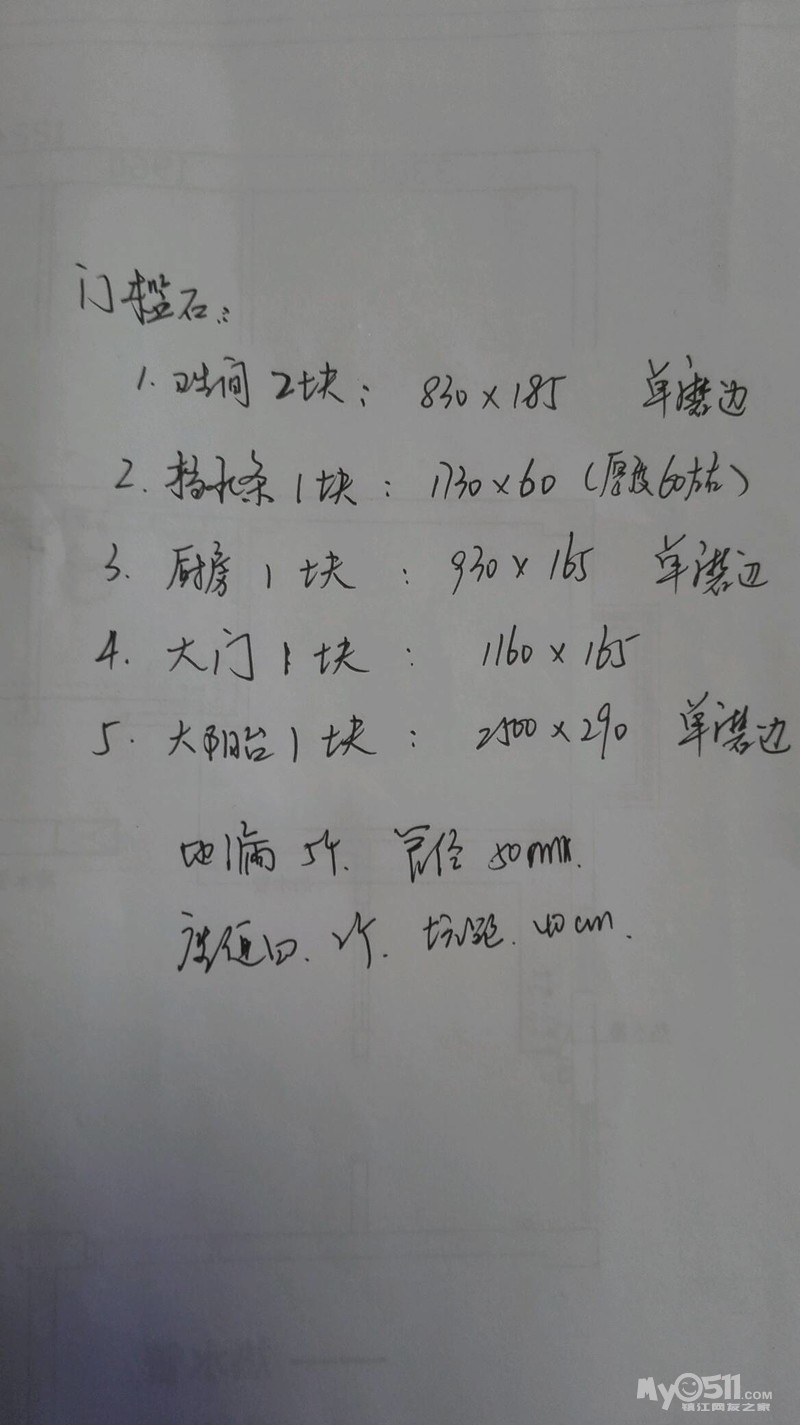 门槛石:
1. 卫生间 2块: 830×185 单磨边
2. 挡水条 1块: 1730×60 (厚度60左右)
3. 厨房 1块: 930×165 单磨边
4. 大门 1块: 1160×165
5. 大阳台 1块: 2500×290 单磨边
地漏 5个. 管径 50mm.
2个. 坑距. 40cm.
热水管
My0511.COM
镇江网友之家